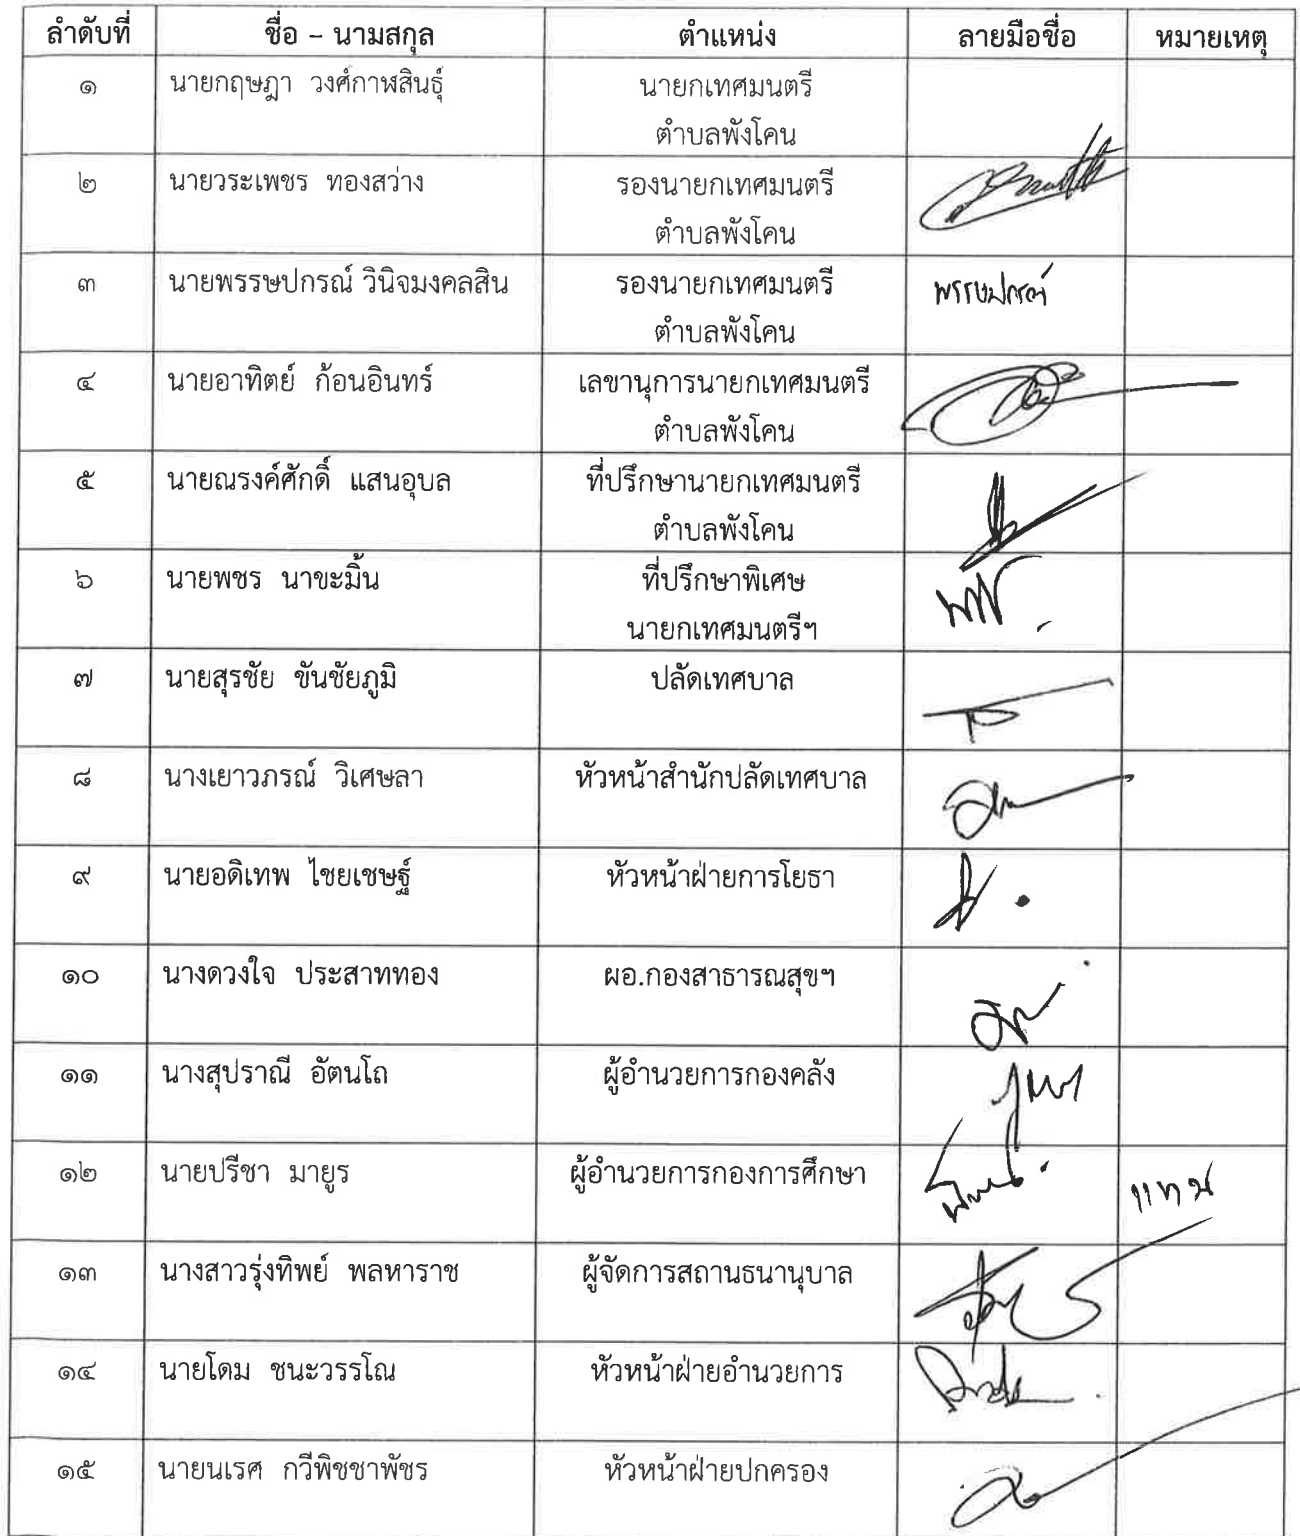 ลำดับที่ ชื่อ – นามสกุล ตำแหน่ง ลายมือชื่อ หมายเหตุ
๑ นายกฤษฎา วงศ์กาฬสินธุ์ นายกเทศมนตรี
ตำบลพังโคน
๒ นายวระเพชร ทองสว่าง รองนายกเทศมนตรี
ตำบลพังโคน
๓ นายพรรษปกรณ์ วินิจมงคลสิน รองนายกเทศมนตรี พรรษปกรณ์
ตำบลพังโคน
๔ นายอาทิตย์ ก้อนอินทร์ เลขานุการนายกเทศมนตรี
ตำบลพังโคน
๕ นายณรงค์ศักดิ์ แสนอุบล ที่ปรึกษานายกเทศมนตรี
ตำบลพังโคน
๖ นายพชร นาขะมิ้น ที่ปรึกษาพิเศษ
นายกเทศมนตรีฯ
๗ นายสุรชัย ขันชัยภูมิ ปลัดเทศบาล
๘ นางเยาวภรณ์ วิเศษลา หัวหน้าสำนักปลัดเทศบาล
๙ นายอดิเทพ ไชยเชษฐ์ หัวหน้าฝ่ายการโยธา
๑๐ นางดวงใจ ประสาททอง ผอ.กองสาธารณสุขฯ
๑๑ นางสุปราณี อัตนโถ ผู้อำนวยการกองคลัง
๑๒ นายปรีชา มายูร ผู้อำนวยการกองการศึกษา แทน
๑๓ นางสาวรุ่งทิพย์ พลหาราช ผู้จัดการสถานธนานุบาล
๑๔ นายโดม ชนะวรรโณ หัวหน้าฝ่ายอำนวยการ
๑๕ นายนเรศ กวีพิชชาพัชร หัวหน้าฝ่ายปกครอง